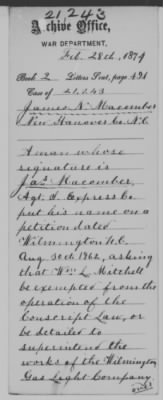 21243
Archive Office,
WAR DEPARTMENT,
Feb. 28th, 1874
Book 2 Letters Sent, page 491
Case of 21,243
James N. Macomber
New Hanover Co. N.C.
A man whose
signature is
Jas. Macomber,
Agt. S. Express Co.
put his name on a
petition dated
Wilmington N.C.
Aug 30th 1862, asking
that Wm. L. Mitchell
be exempted from the
operation of the
Conscript Law, or
be detailed to
superintend the
works of the Wilmington
Gas Light Company